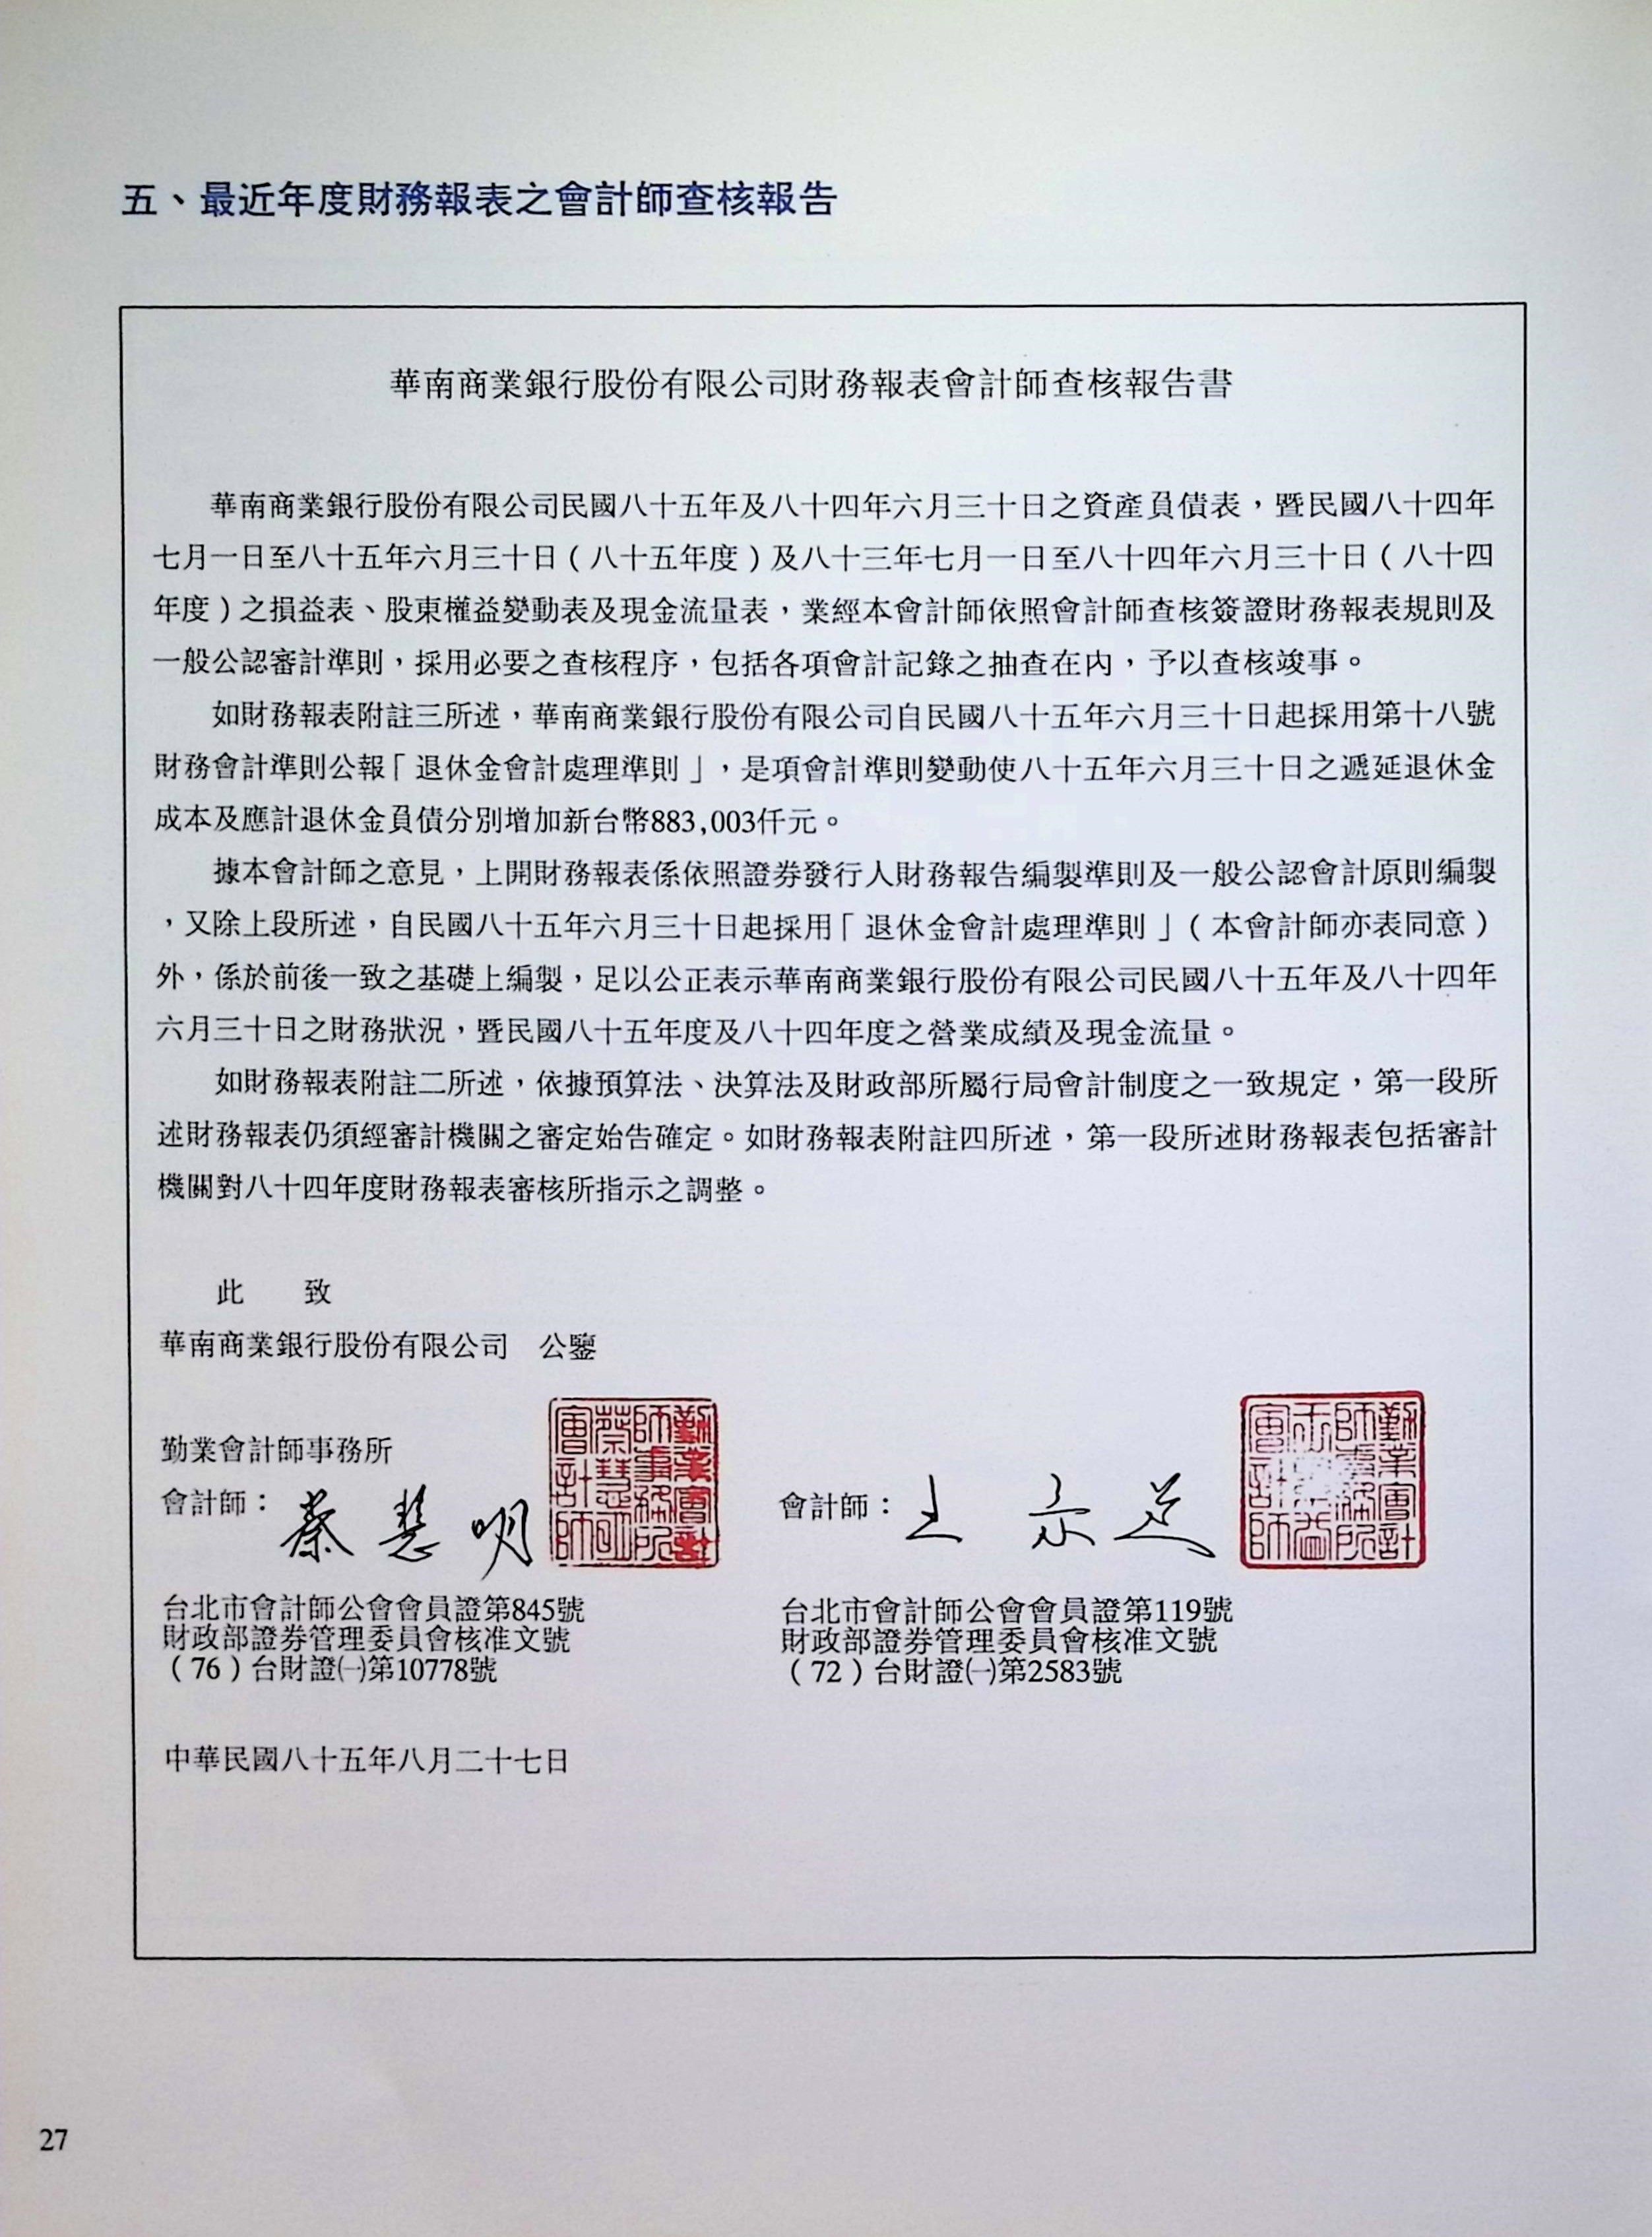 五、最近年度財務報表之會計師查核報告
華南商業銀行股份有限公司財務報表會計師查核報告書
華南商業銀行股份有限公司民國八十五年及八十四年六月三十日之資產負債表，暨民國八十四年
七月一日至八十五年六月三十日（八十五年度）及八十三年七月一日至八十四年六月三十日（八十四
年度）之損益表、股東權益變動表及現金流量表，業經本會計師依照會計師查核簽證財務報表規則及
一般公認審計準則，採用必要之查核程序，包括各項會計記錄之抽查在內，予以查核竣事。
如財務報表附註三所述，華南商業銀行股份有限公司自民國八十五年六月三十日起採用第十八號
財務會計準則公報「退休金會計處理準則」，是項會計準則變動使八十五年六月三十日之遞延退休金
成本及應計退休金負債分別增加新台幣883,003仟元。
據本會計師之意見，上開財務報表係依照證券發行人財務報告編製準則及一般公認會計原則編製
，又除上段所述，自民國八十五年六月三十日起採用「退休金會計處理準則」（本會計師亦表同意）
外，係於前後一致之基礎上編製，足以公正表示華南商業銀行股份有限公司民國八十五年及八十四年
六月三十日之財務狀況，暨民國八十五年度及八十四年度之營業成績及現金流量。
如財務報表附註二所述，依據預算法、決算法及財政部所屬行局會計制度之一致規定，第一段所
述財務報表仍須經審計機關之審定始告確定。如財務報表附註四所述，第一段所述財務報表包括審計
機關對八十四年度財務報表審核所指示之調整。
此　致
華南商業銀行股份有限公司　公鑒
勤業會計師事務所
會計師：
勤業會計師事務所　會計師
會計師：王
勤業會計師事務所　會計師
台北市會計師公會會員證第845號
財政部證券管理委員會核准文號
（76）台財證㈠第10778號
台北市會計師公會會員證第119號
財政部證券管理委員會核准文號
（72）台財證㈠第2583號
中華民國八十五年八月二十七日
27